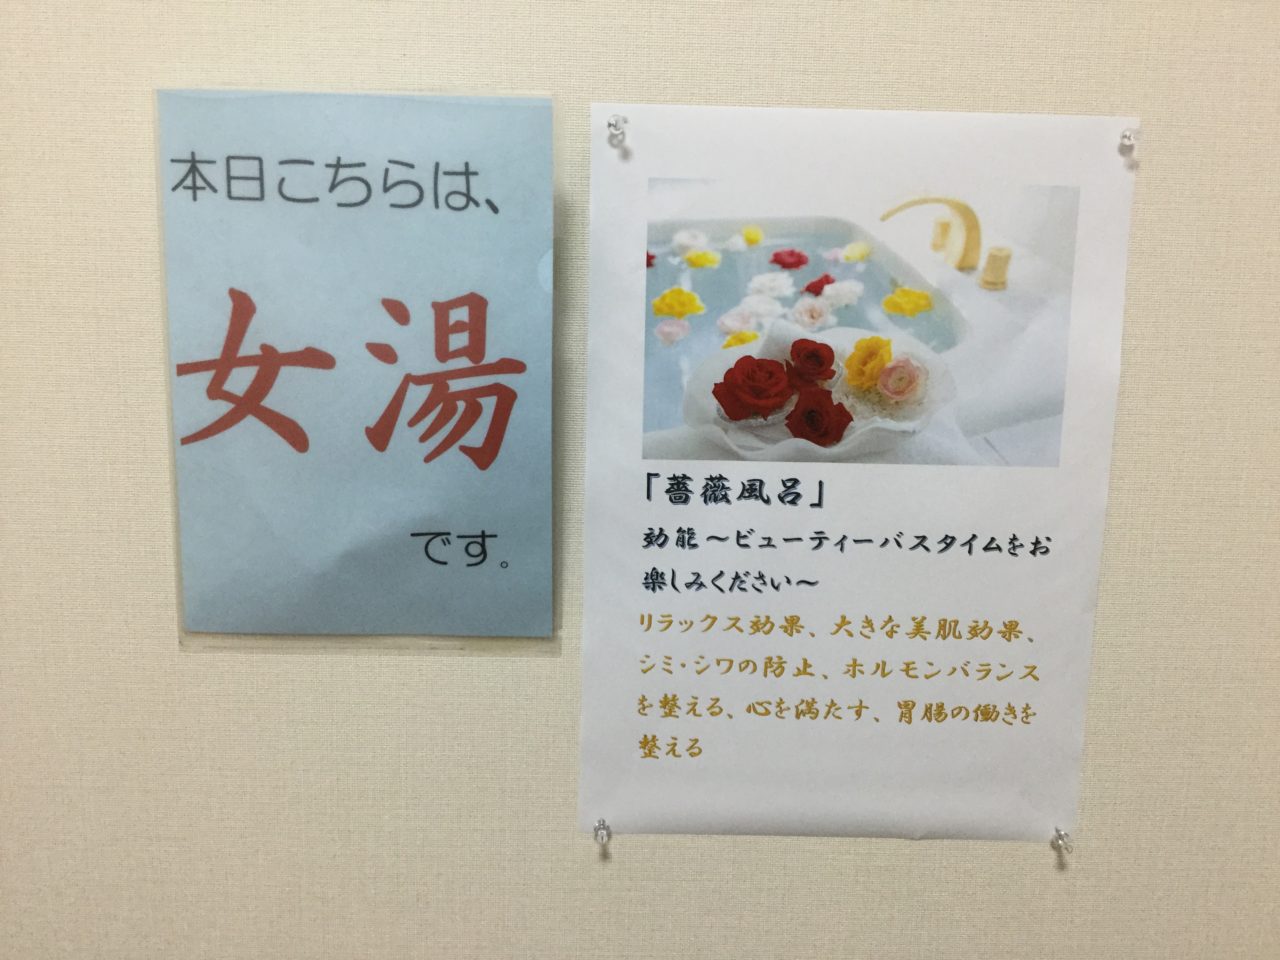 本日こちらは、
女湯
です。
「薔薇風呂」
効能～ビューティーバスタイムをお
楽しみください～
リラックス効果、大きな美肌効果、
シミ・シワの防止、ホルモンバランス
を整える、心を満たす、胃腸の働きを
整える